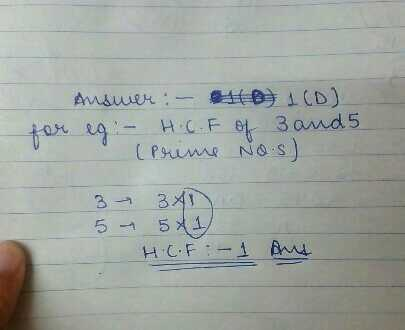 Answer :- 1(D) 1(D)
for eg :- H.C.F of 3 and 5
(Prime NO.S)
3 → 3×1
5 → 5×1
H.C.F :- 1 Ans